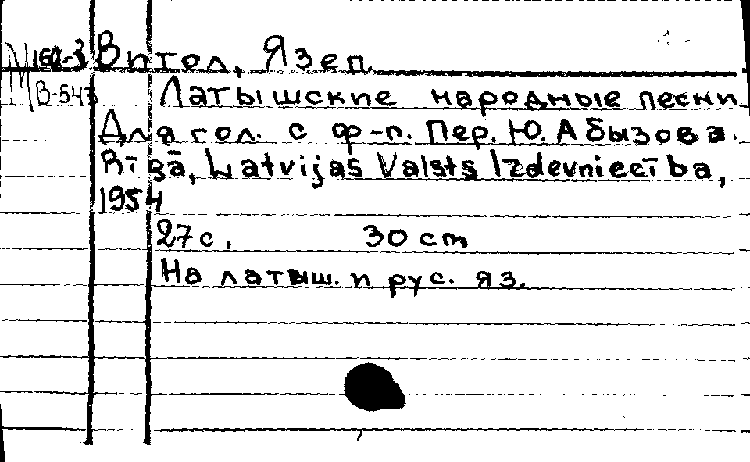 М 162-3 Витол, Язеп.
В-543 Латышские народные песни.
Для гол. с ф-п. Пер. Ю. Абызова.
Rīgā, Latvijas Valsts Izdevniecība,
1954
27 с. 30 cm
На латыш. и рус. яз.